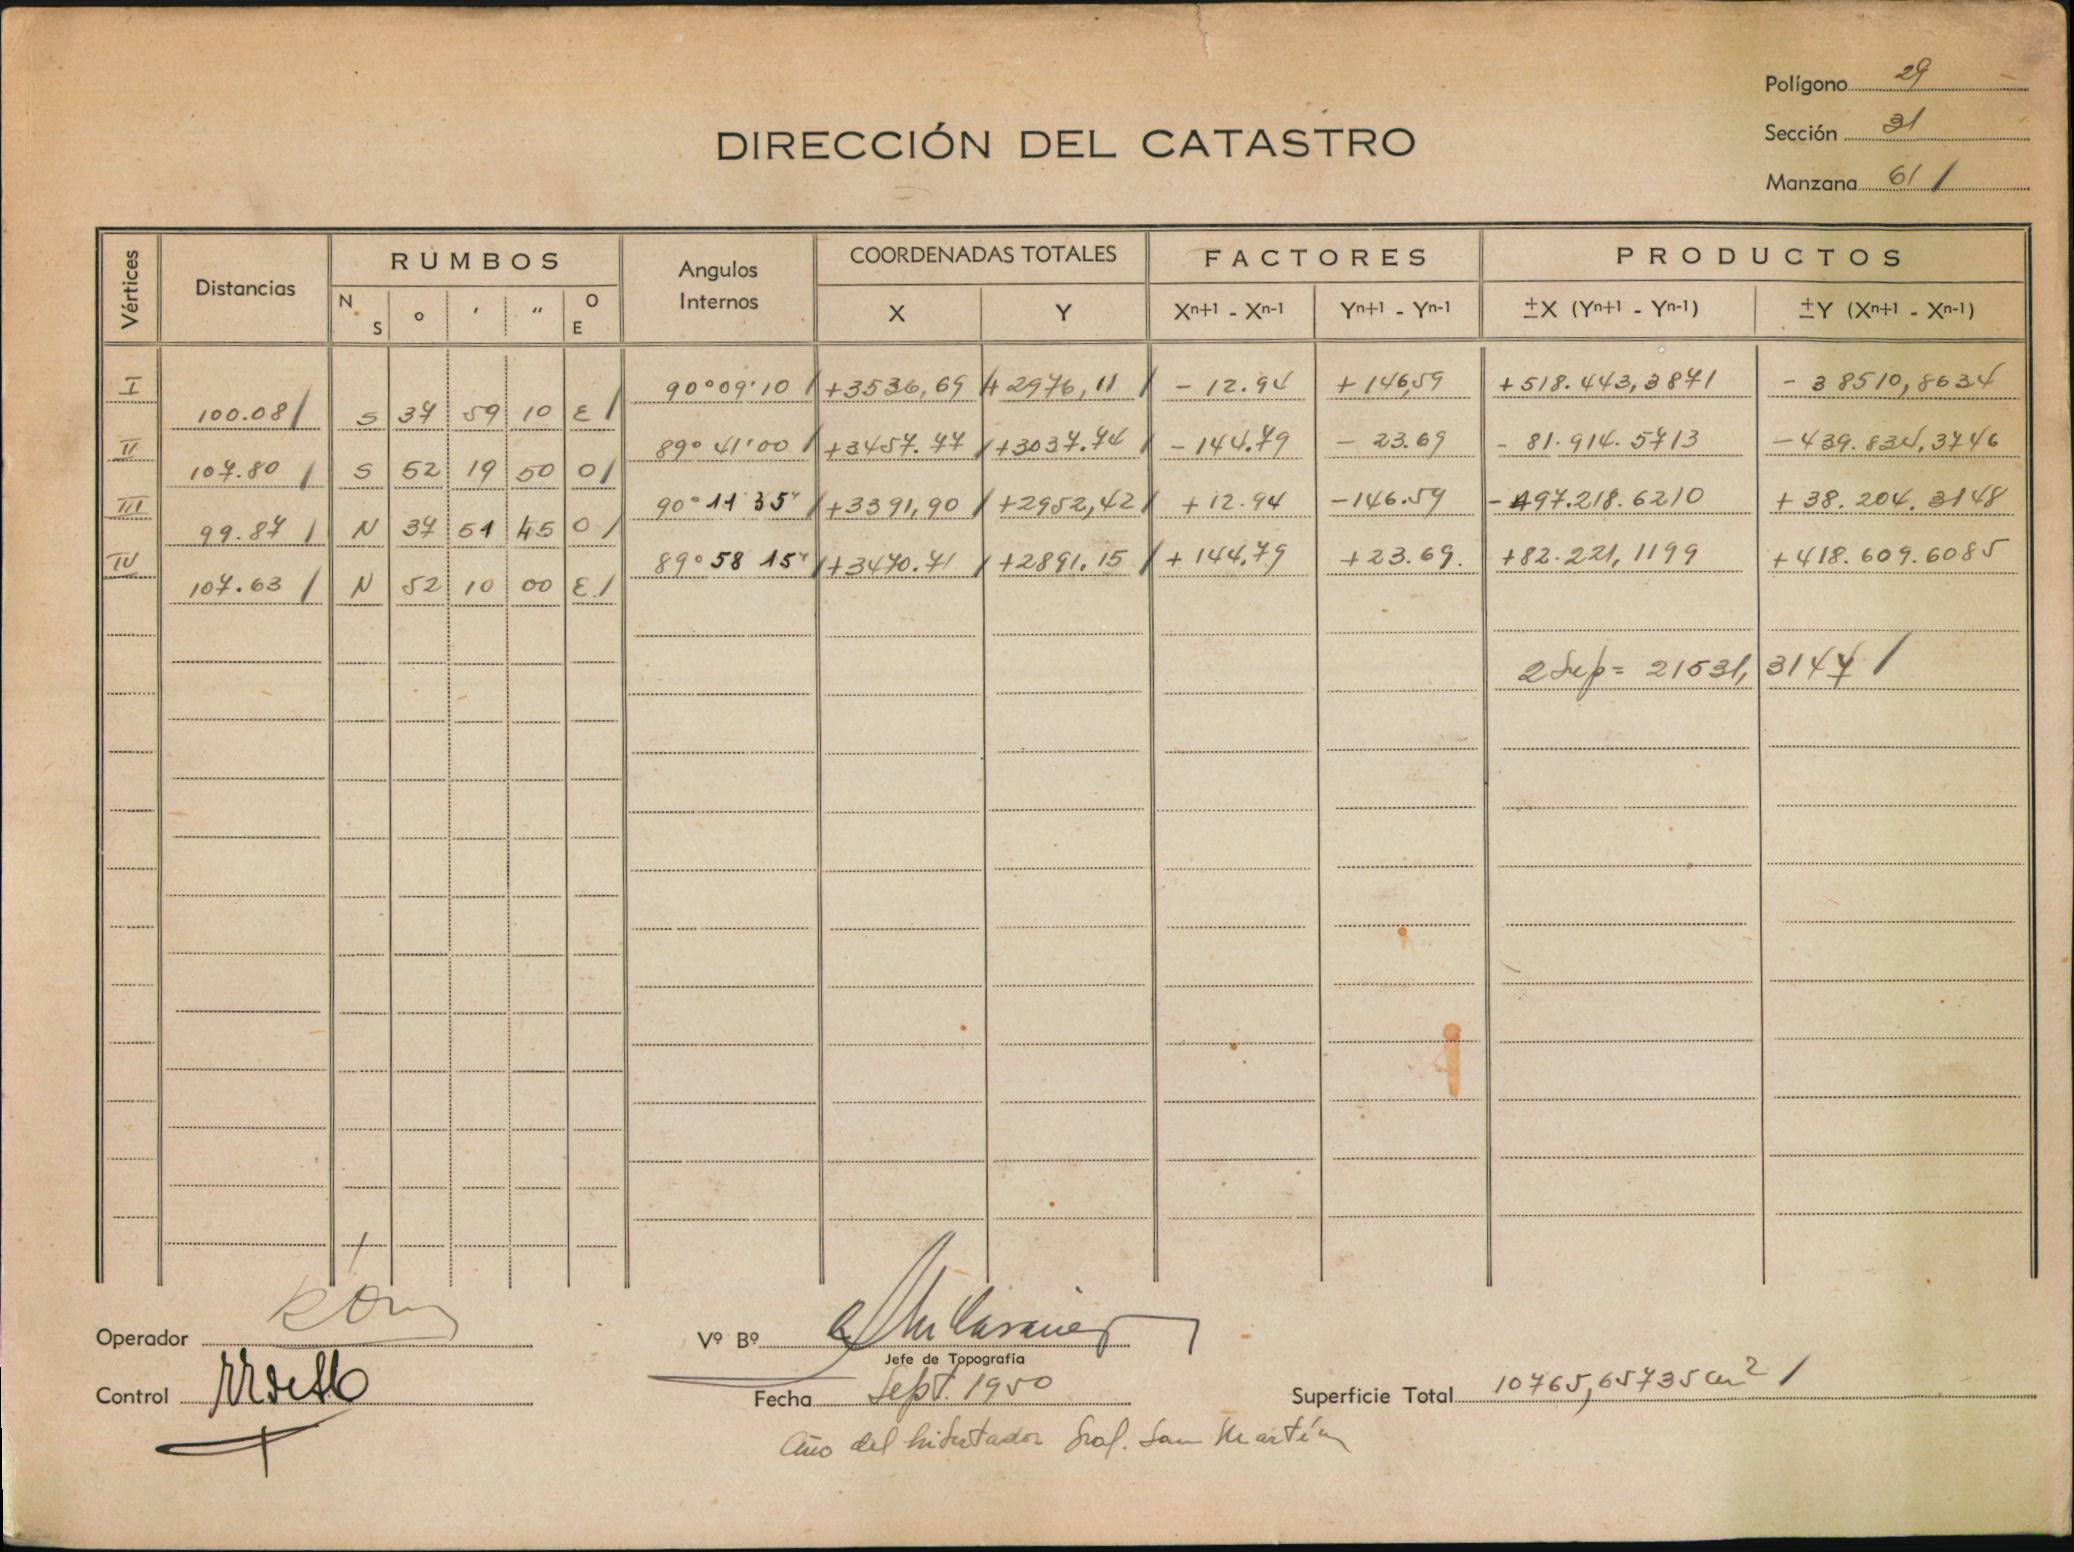 Polígono 29
DIRECCIÓN DEL CATASTRO
Sección 31
Manzana 61 /
Vértices Distancias RUMBOS Angulos Internos COORDENADAS TOTALES FACTORES PRODUCTOS
N S o ' " O E X Y Xn+1 - Xn-1 Yn+1 - Yn-1 ±X (Yn+1 - Yn-1) ±Y (Xn+1 - Xn-1)
I 90°09'10 / +3536,69 /+ 2976,11 / - 12.94 + 146,59 +518.443,3871 - 38510,8634
100.08 / S 37 59 10 E /
II 89° 41'00 / +3457.77 / +3037.74 / - 144.79 - 23.69 - 81.914.5713 - 439.834,3746
107.80 / S 52 19 50 O /
III 90° 11 35" / +3391,90 / +2952,42 / + 12.94 - 146.59 - 497.218.6210 + 38.204.3148
99.87 / N 37 51 45 O /
IV 89° 58 15" / +3470.71 / +2891.15 / + 144,79 + 23.69. +82.221,1199 +418.609.6085
107.63 / N 52 10 00 E /
2 Sup = 21531,3147 /
Operador
Vº Bº
Jefe de Topografía
Control
Fecha Sept. 1950
Superficie Total 10765,65735 m2 /
Año del Libertador Gral. San Martín